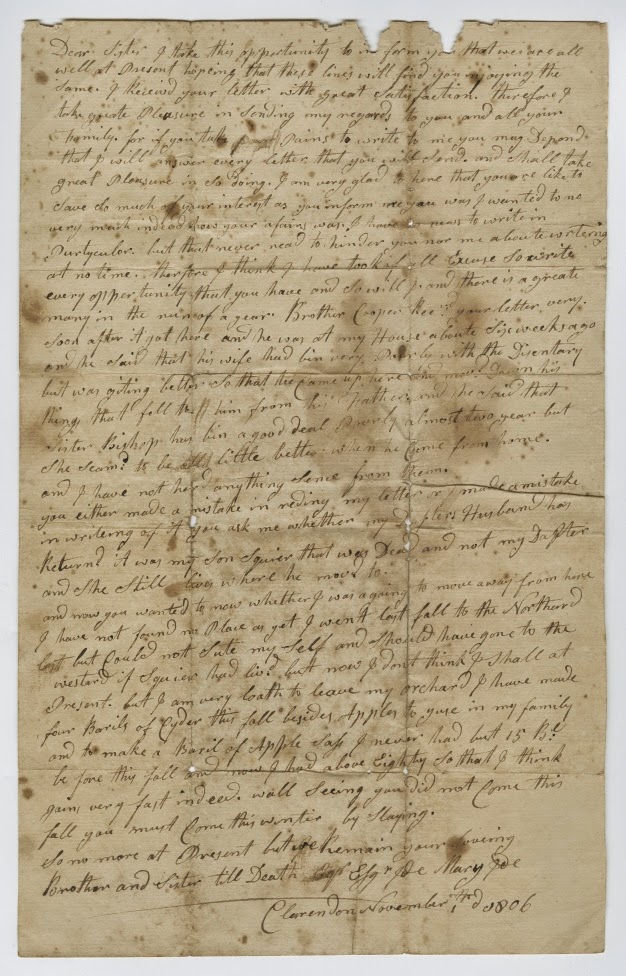 Dear Sister I take this opportunity to inform you that we are all
well at Present hoping that these lines will find you injoying the
Same. I Receiud your letter with great Satisfaction. therefore I
take grate Pleasure in Sending my regards to you and all your
family. for if you take Pains to write to me you may Depend
that I will answer every Letter that you will Send. and Shall take
great Pleasure in So doing. I am very glad to here that you are like to
Save So much of your interest as you inform me you was I wanted to no
very much indeed how your afairs was. I have no news to write in
Purtyculor. but that never nead to hinder you nor me aboute writeing
at no time. therefore I think I have took up all Excuse So write
every opportunity that you have and So will I. and there is a greate
many in the run of a year. Brother Cooper Recd your letter very
Soon after it got here and he was at my House aboute Six weeks ago
and he Said that his wife had bin very Poorly with the Disentary
but was giting better So that he came up here and move Down his
things that fell to him from his Father, and he Said that
Sister Bishop has bin a good deal Poorly almost two year but
She Seamd to be a little better when he Come from home.
and I have not herd anything Sence from them.
you either made a mistake in reding my letter or I made a mistake
in writeing of it you ask me whether my Dafters Husband has
Returnd it was my Son Squier that was Dead and not my Dafter
and She Still lives where he movd to.
and now you wanted to now whether I was agoing to move away from here
I have not found no Place as yet I went last fall to the Northard
but Could not Sute my Self and Should have gone to the
westard if Squier had livd but now I dont think I Shall at
Present. but I am very loath to leave my orchard I have made
four Barils of Cyder this fall besides Apples to yuse in my family
and to make a Baril of Apple Sass I never had but 15 Bl
before this fall and now I had above Eighty So that I think
gains very fast indeed. will Seeing you did not Come this
fall you must Come this winter by Slaying.
So no more at Present but we Remain your loveing
Brother and Sister till Death Esqr Mary
Clarendon November 1806